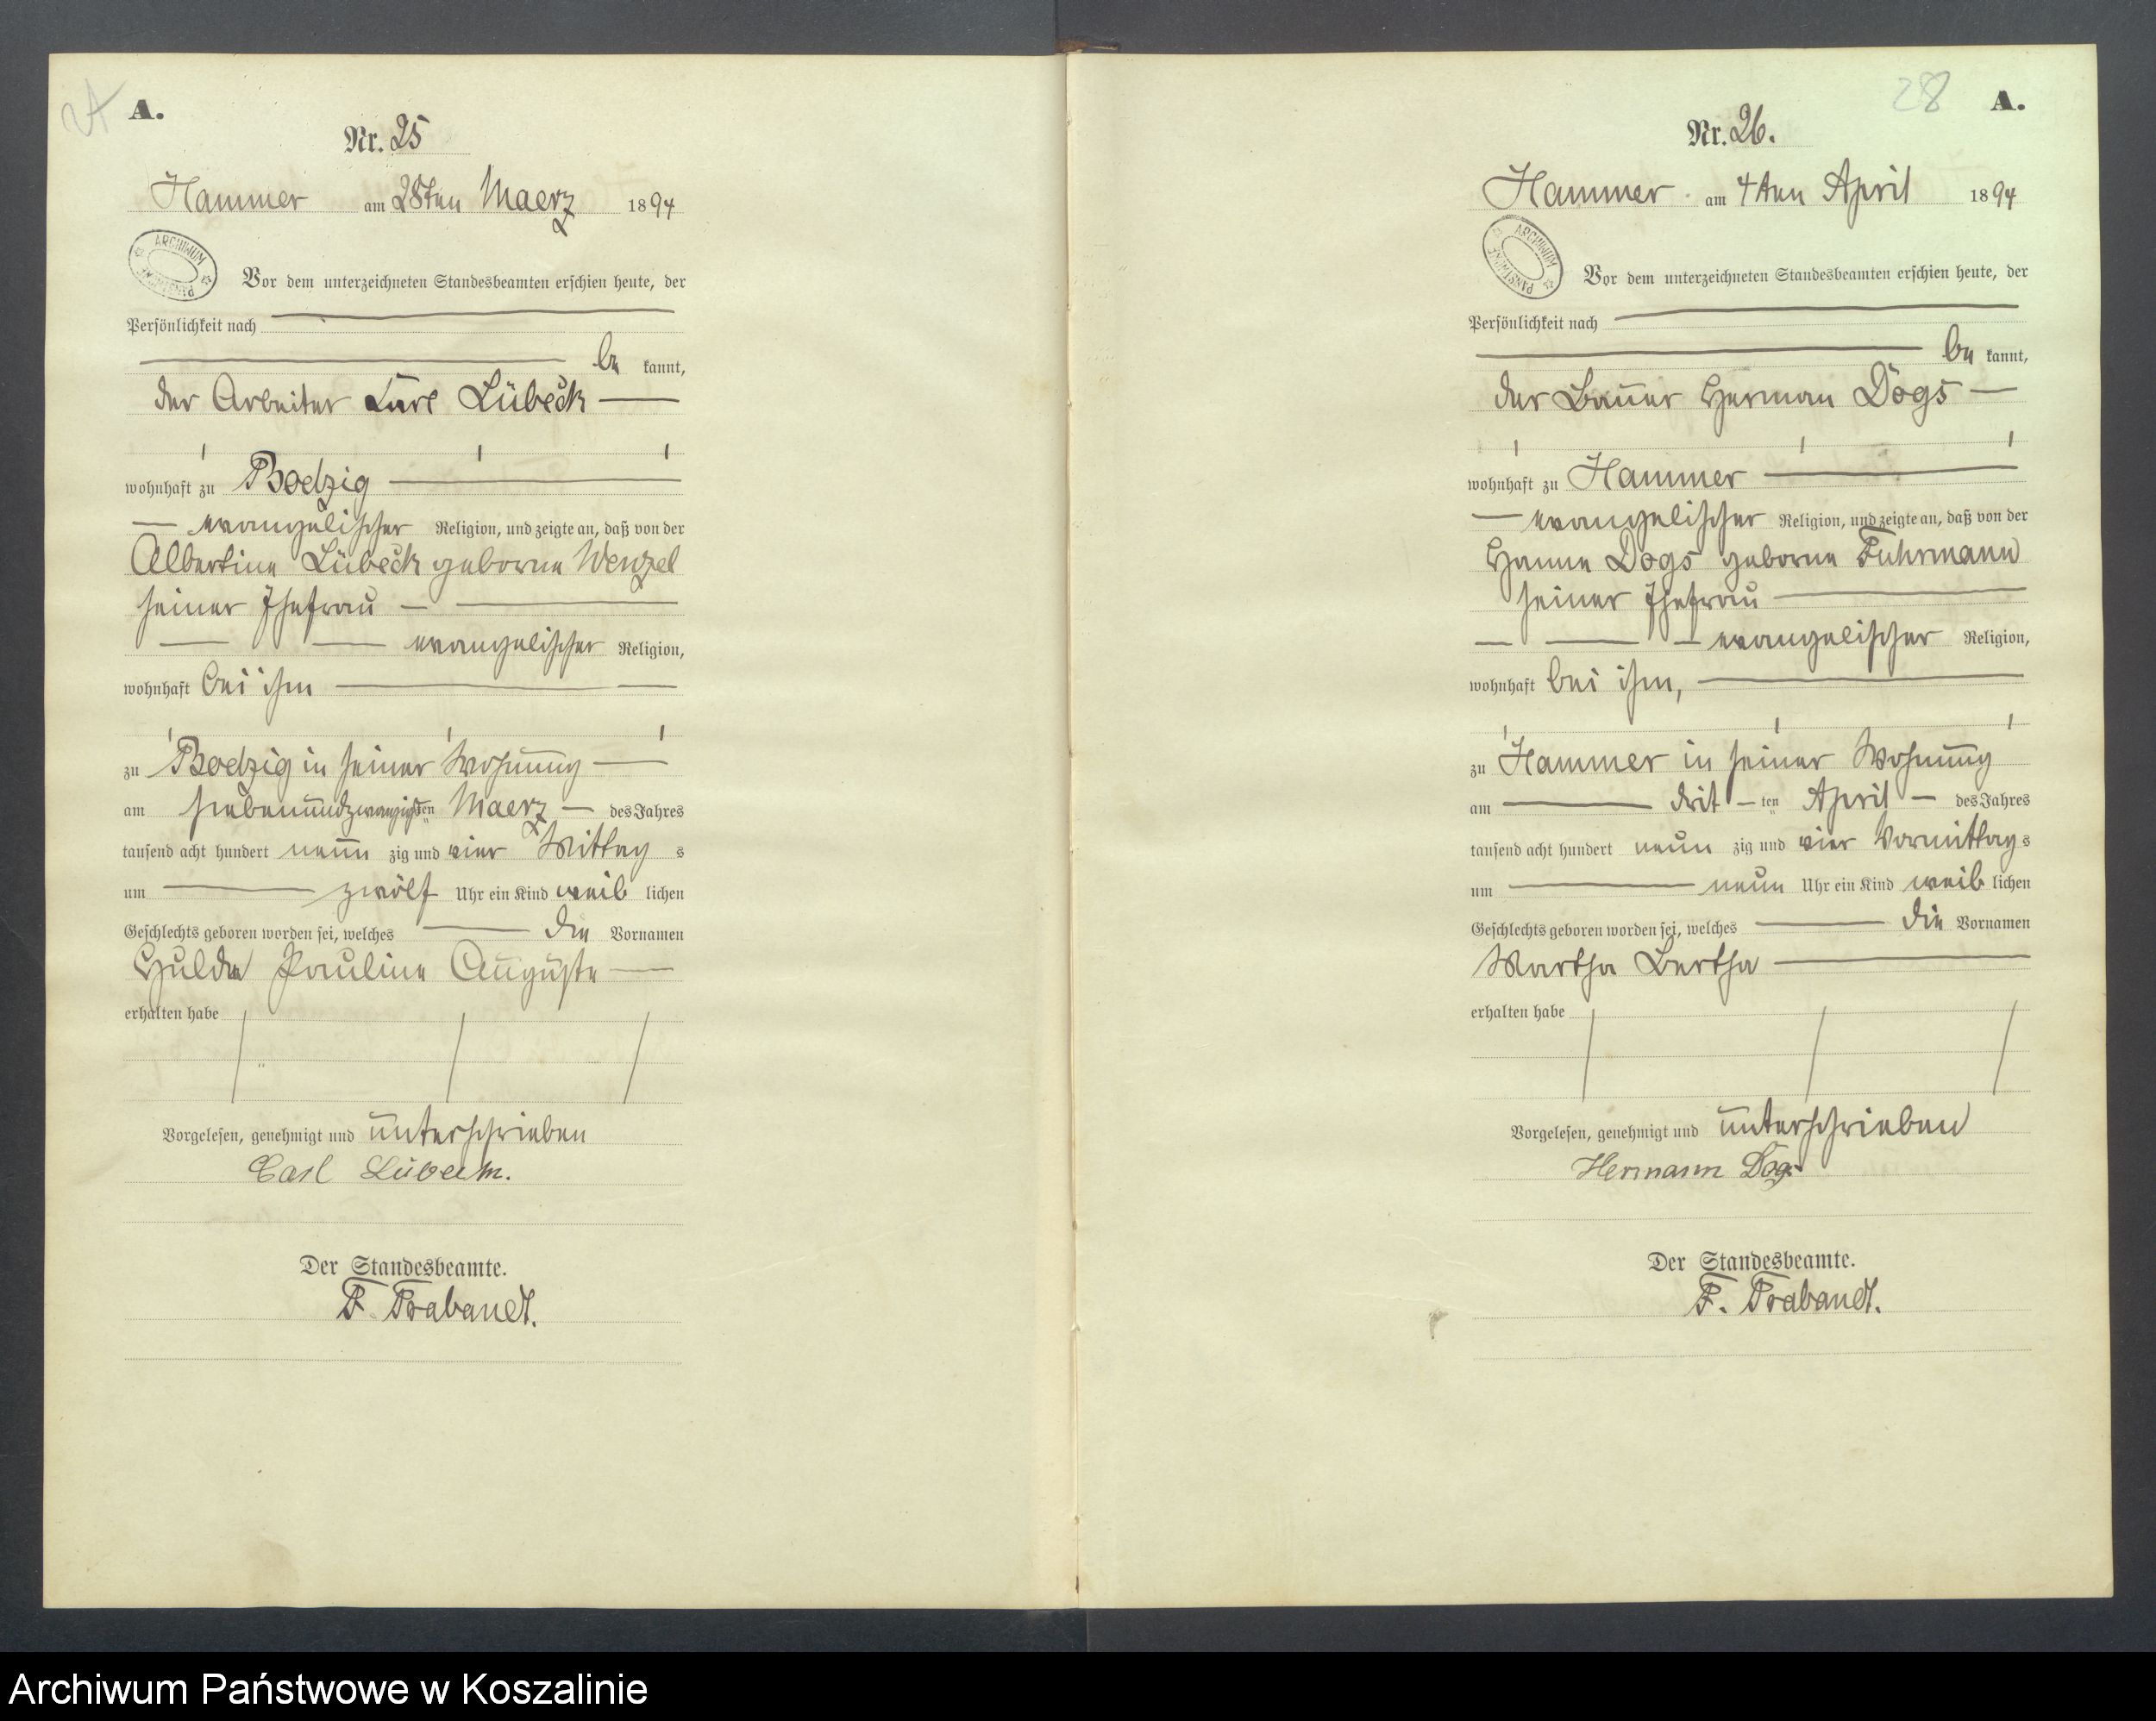 A.
Nr. 25
Hammer am 28ten Maerz 1894
ARCHIWUM PAŃSTWOWE
Vor dem unterzeichneten Standesbeamten erschien heute, der
Persönlichkeit nach
be kannt,
der Arbeiter Karl Lübeck
wohnhaft zu Bodzig
evangelischer Religion, und zeigte an, daß von der
Albertine Lübeck geborne Wenzel
seiner Ehefrau
evangelischer Religion,
wohnhaft bei ihm
zu Bodzig in seiner Wohnung
am siebenundzwanzigsten Maerz des Jahres
tausend acht hundert neun zig und vier Mittag s
um zwölf Uhr ein Kind weib lichen
Geschlechts geboren worden sei, welches die Vornamen
Hulda Pauline Auguste
erhalten habe
Vorgelesen, genehmigt und unterschrieben
Carl Lübeck.
Der Standesbeamte.
F. Trabandt.
28 A.
Nr. 26.
Hammer am 4ten April 1894
ARCHIWUM PAŃSTWOWE
Vor dem unterzeichneten Standesbeamten erschien heute, der
Persönlichkeit nach
be kannt,
der Bauer Herman Dogs
wohnhaft zu Hammer
evangelischer Religion, und zeigte an, daß von der
Hanne Dogs geborne Fuhrmann
seiner Ehefrau
evangelischer Religion,
wohnhaft bei ihm,
zu Hammer in seiner Wohnung
am drit ten April des Jahres
tausend acht hundert neun zig und vier Vormittag s
um neun Uhr ein Kind weib lichen
Geschlechts geboren worden sei, welches die Vornamen
Martha Bertha
erhalten habe
Vorgelesen, genehmigt und unterschrieben
Hermann Dogs
Der Standesbeamte.
F. Trabandt.
Archiwum Państwowe w Koszalinie